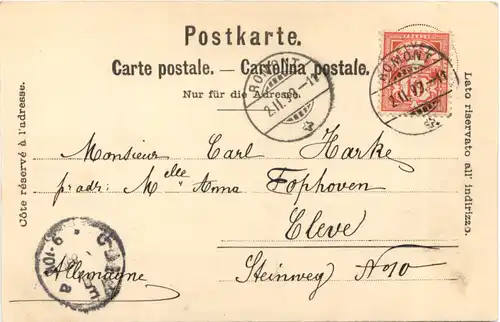 Postkarte.
Carte postale. — Cartolina postale.
Nur für die Adresse.
Côté réservé à l'adresse.
Lato riservato all' indirizzo.
ROMONT
2.II.99.-11
ROMONT
2.II.99.-11
Monsieur Carl Harke
pr adr: Melle Anna Fophoven
Cleve
Allemagne Steinweg No 10